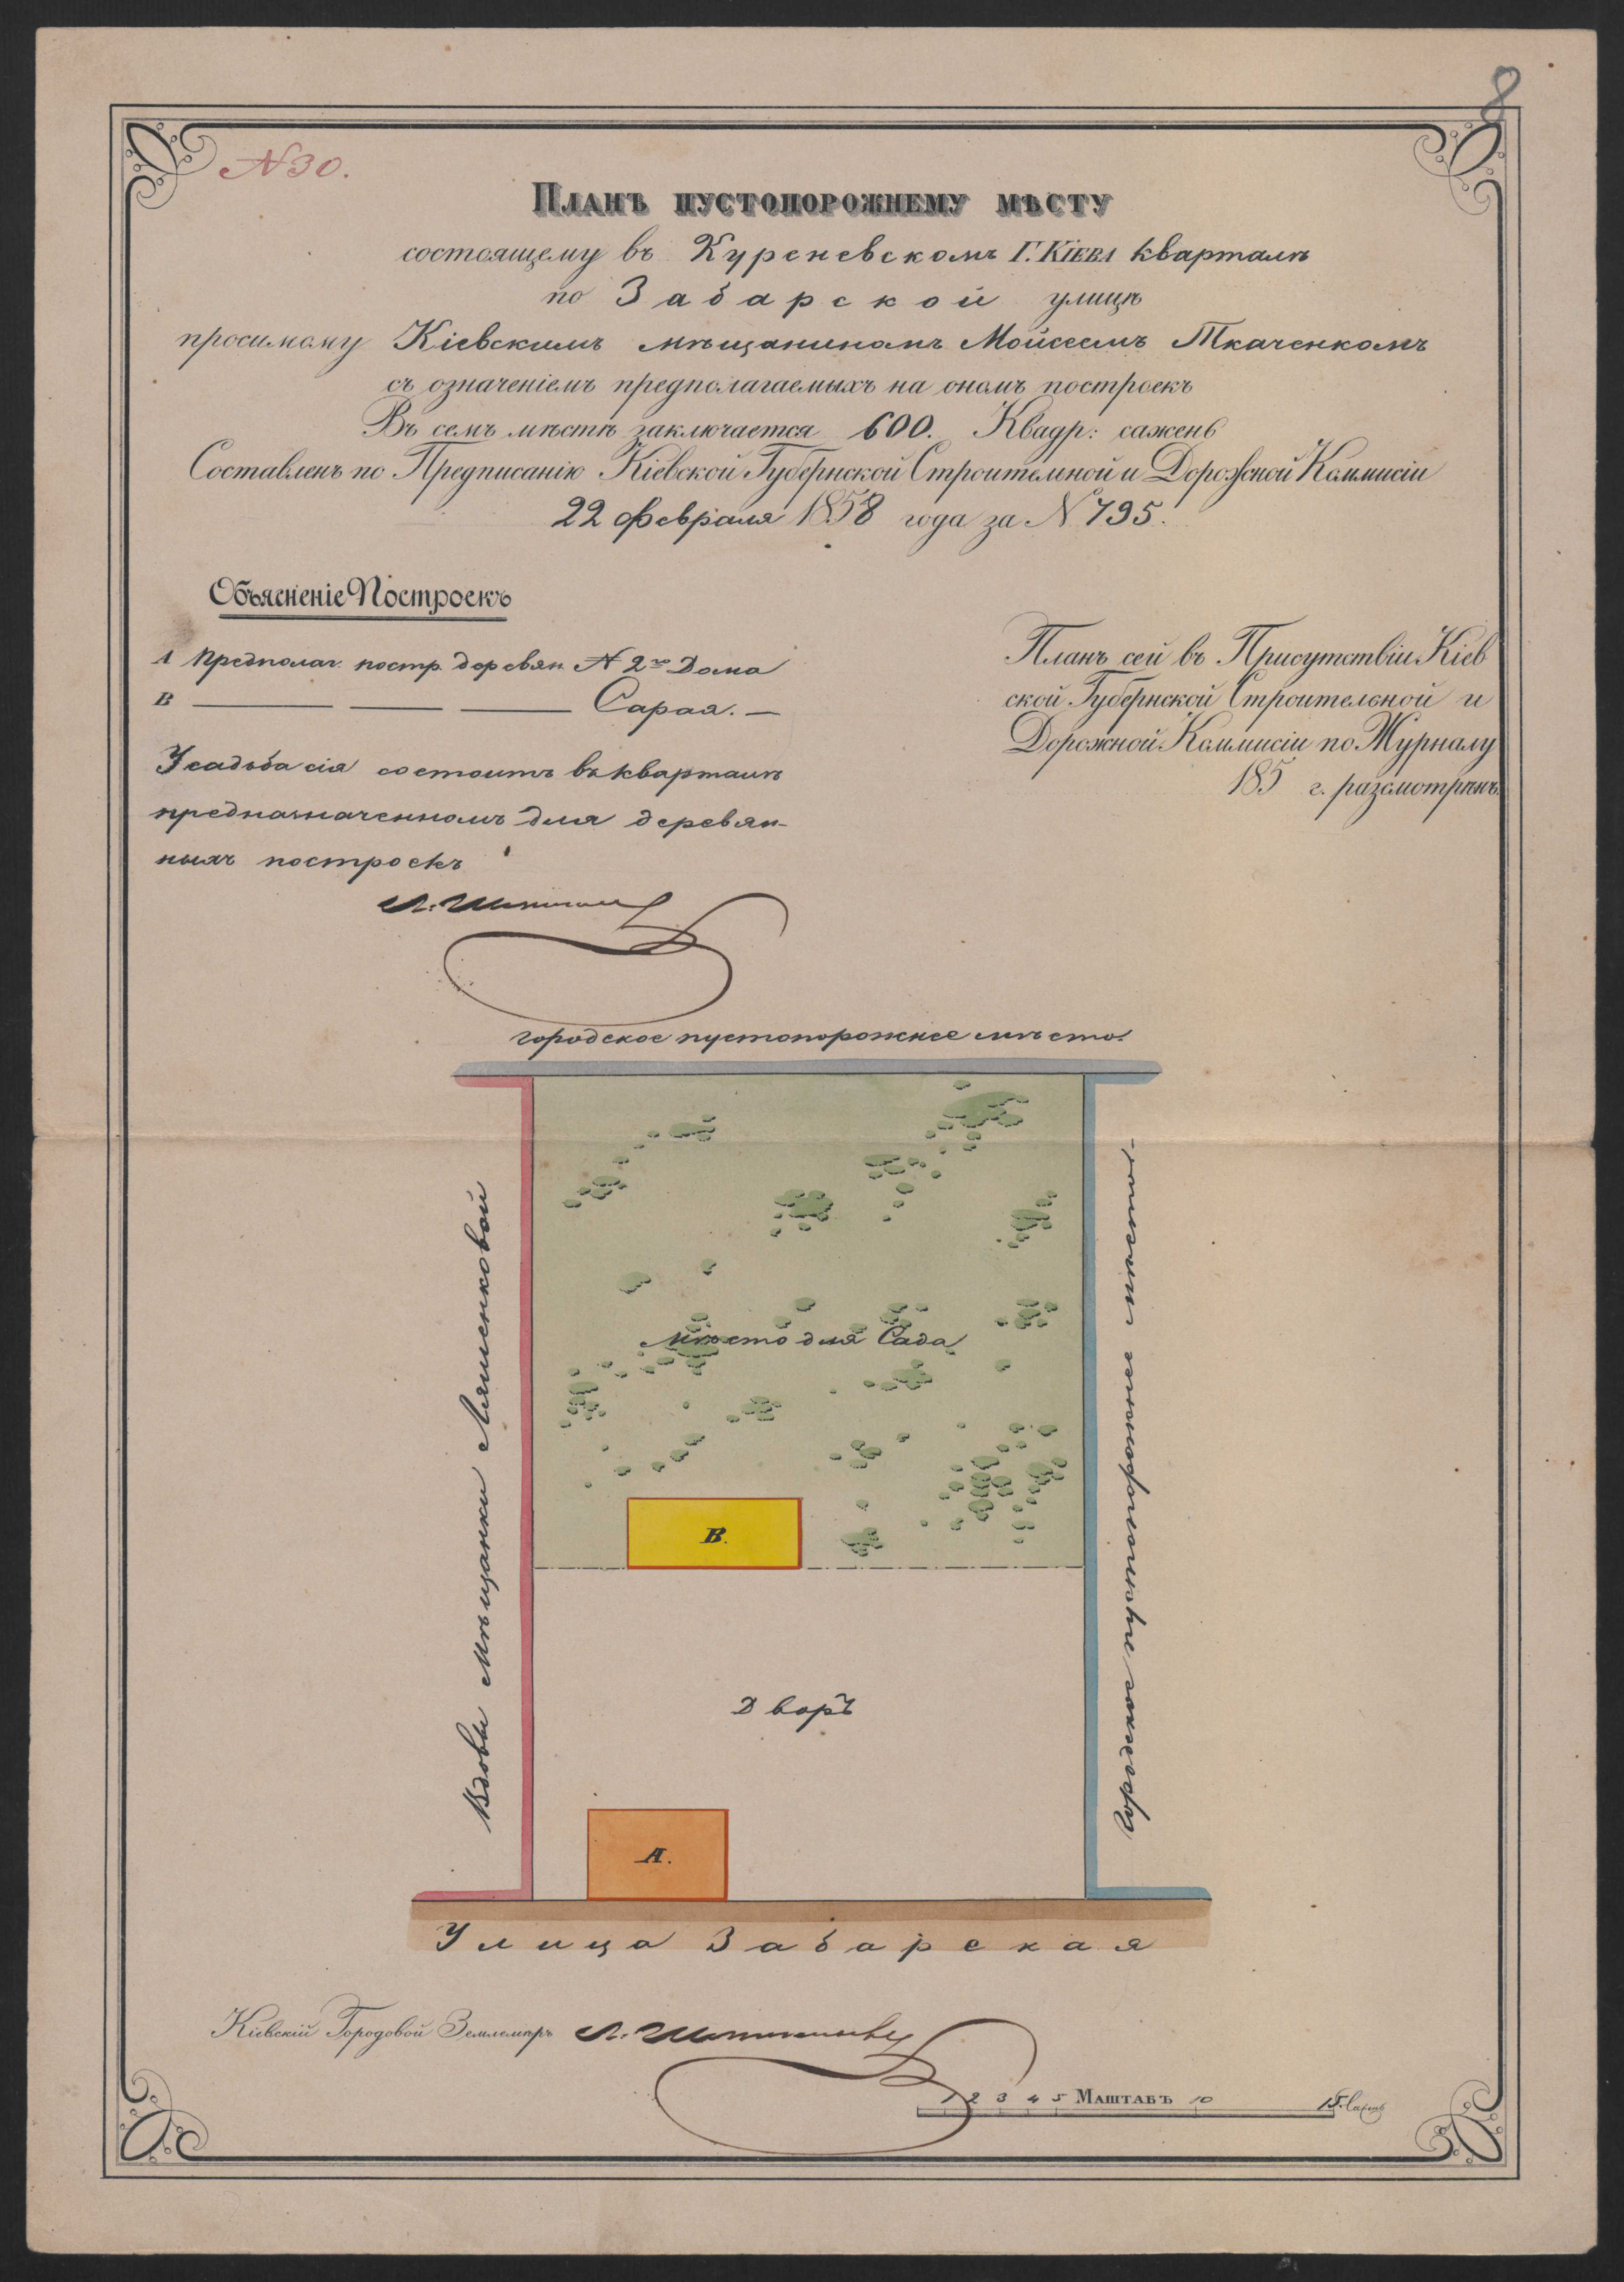 8
N 30.
Планъ пустопорожнему мѣсту
состоящему въ Куреневскомъ Г. Кіева кварталѣ
по Забарской улицѣ
просимому Кіевскимъ мѣщаниномъ Мойсеемъ Ткаченкомъ
съ означеніемъ предполагаемыхъ на ономъ построекъ
Въ семъ мѣстѣ заключается 600. Квадр: сажень
Составленъ по Предписанію Кіевской Губернской Строительной и Дорожной Коммисіи
22 февраля 1858 года за N 795.
Объясненіе Построекъ
А Предполаг. постр. деревян. N 2го Дома
В Сарая.
Усадьба сія состоитъ въ кварталѣ
предназначенномъ для деревян-
ныхъ построекъ
Планъ сей въ Присутствіи Кіев
ской Губернской Строительной и
Дорожной Коммисіи по Журналу
185 г. разсмотрѣнъ.
городское пустопорожнее мѣсто.
Вдовы Мѣщанки Ляшенковой
Городское пустопорожнее мѣсто.
Мѣсто для Сада
В.
Дворъ
А.
Улица Забарская
Кіевскій Городовой Землемѣръ
1 2 3 4 5 Маштабъ 10 15. Сажень